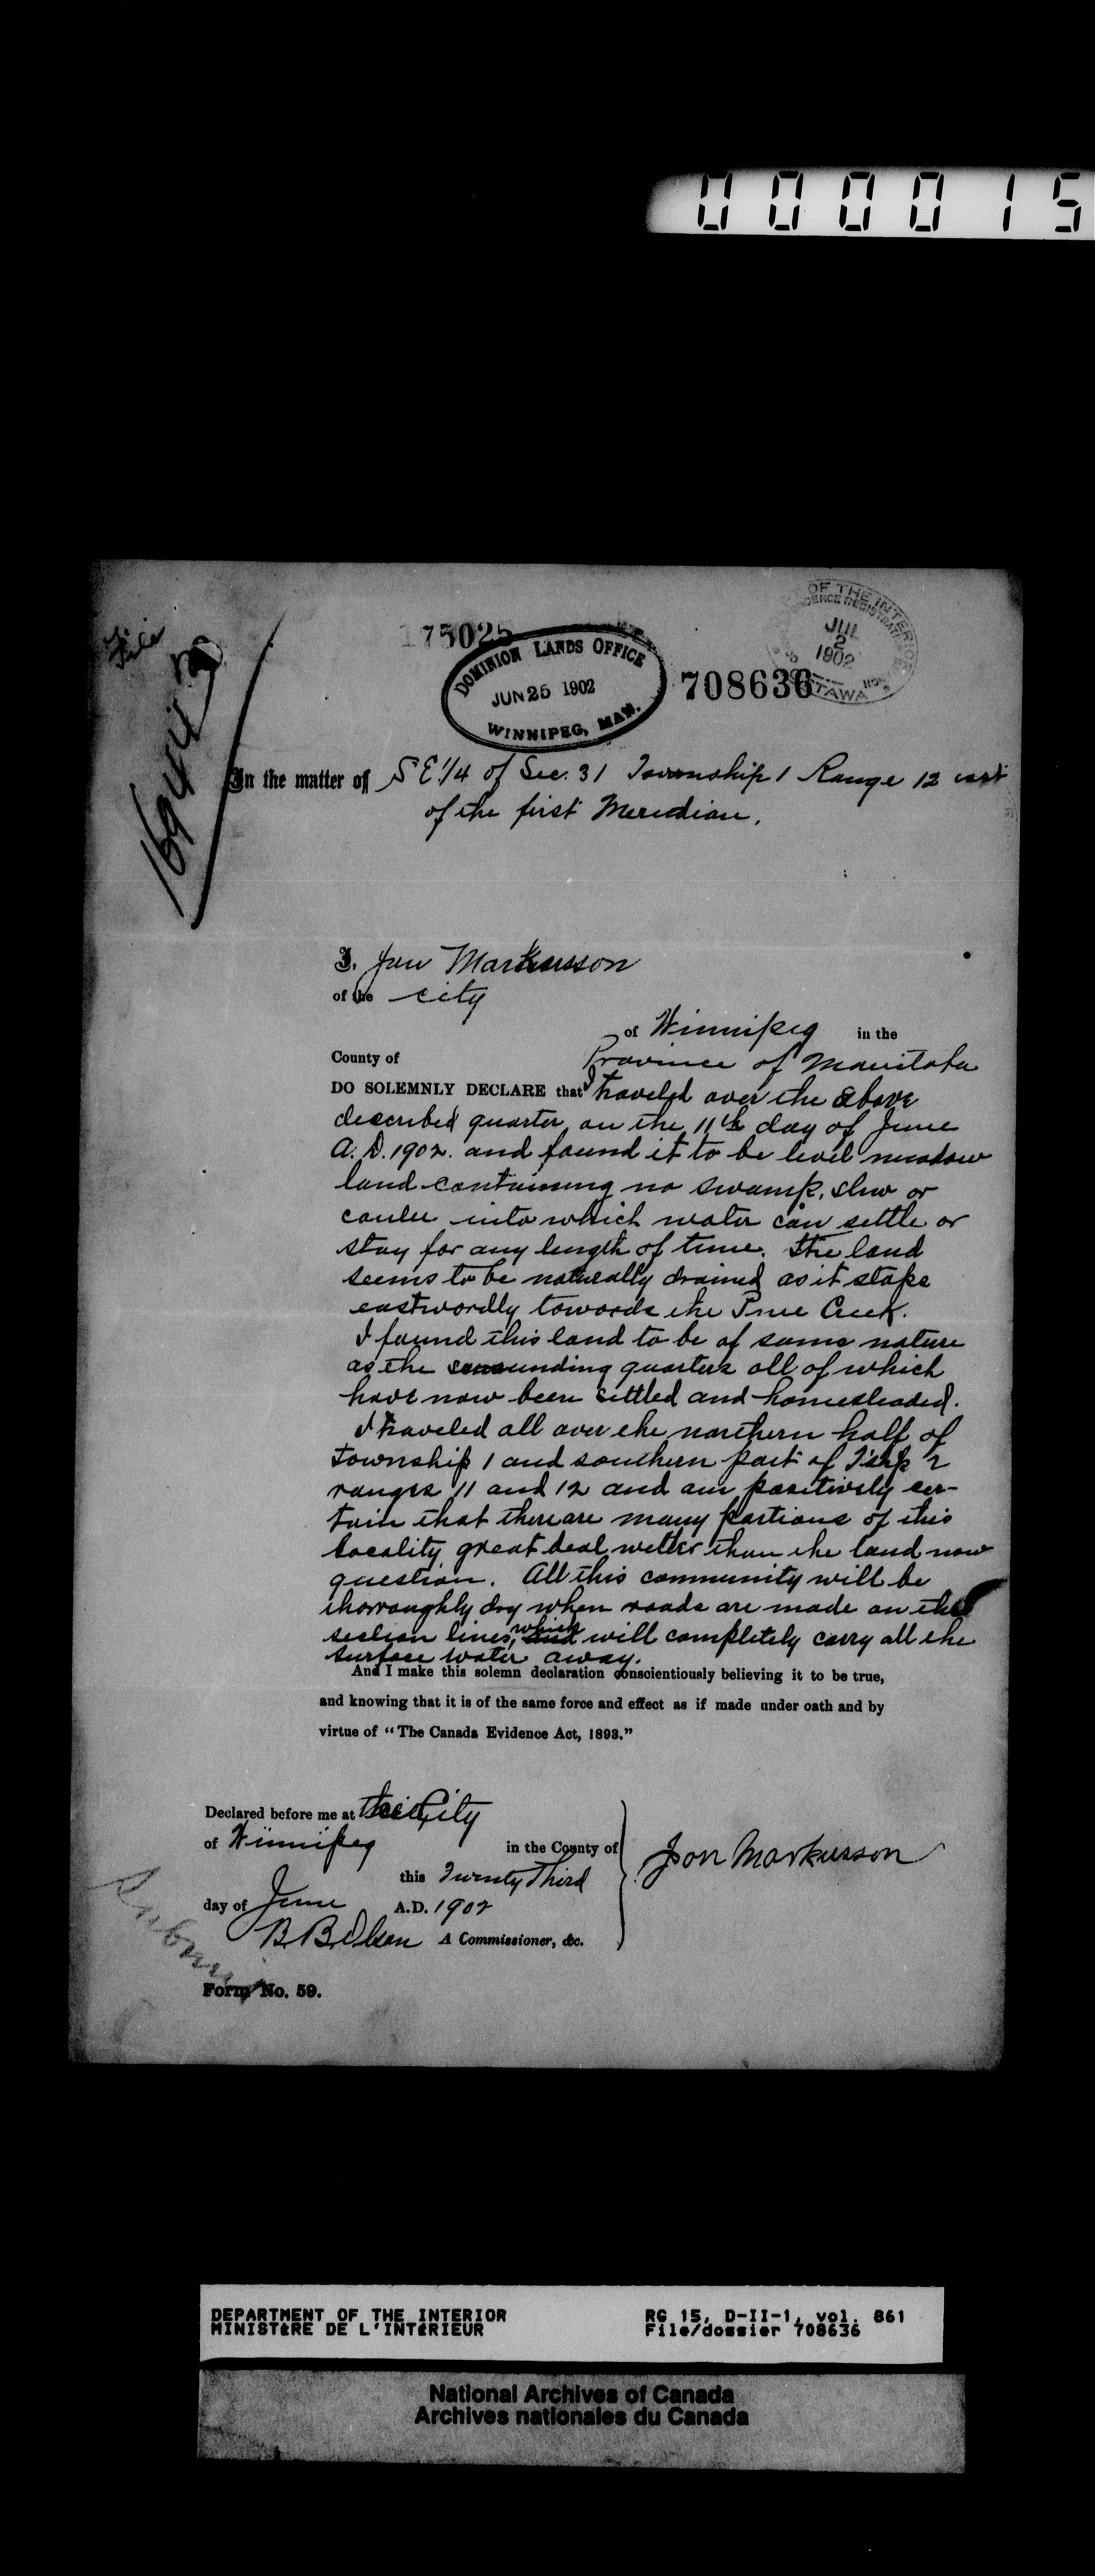 000015
File
175025
DOMINION LANDS OFFICE
JUN 25 1902
WINNIPEG, MAN.
708636
OF THE INTERIOR
JUL
2
1902
OTTAWA
In the matter of S E 1/4 of Sec. 31 Township 1 Range 12 east
of the first Meridian.
I, Jon Markusson
of the city
of Winnipeg in the
County of Province of Manitoba
DO SOLEMNLY DECLARE that I traveled over the above
described quarter on the 11th day of June
A.D. 1902. and found it to be level meadow
land containing no swamp, slew or
coulee into which water can settle or
stay for any length of time. The land
seems to be naturally drained as it slope
eastwordly towards the Pine Creek.
I found this land to be of same nature
as the surounding quarters all of which
have now been settled and homesteaded.
I traveled all over the northern half of
township 1 and southern part of T'shp 2
ranges 11 and 12 and am positively cer-
tain that there are many portions of this
locality great deal wetter than the land now
question. All this community will be
thorroughly dry when roads are made on the
section lines, which and will completely carry all the
surface water away.
And I make this solemn declaration conscientiously believing it to be true,
and knowing that it is of the same force and effect as if made under oath and by
virtue of "The Canada Evidence Act, 1893."
Declared before me at the City
of Winnipeg in the County of
this Twenty Third
day of June A.D. 1902
B. B. Olson A Commissioner, &c.
Jon Markusson
Form No. 59.
DEPARTMENT OF THE INTERIOR RG 15, D-II-1, vol. 861
MINISTÈRE DE L'INTÉRIEUR File/dossier 708636
National Archives of Canada
Archives nationales du Canada